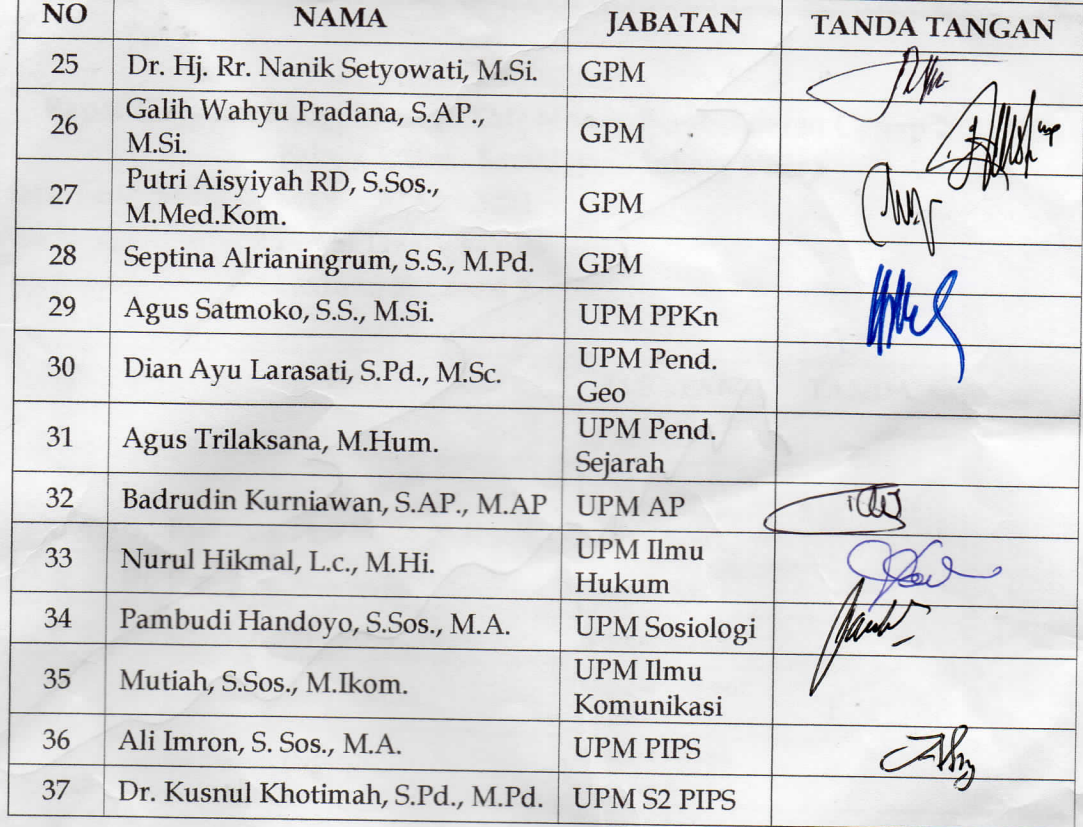 NO NAMA JABATAN TANDA TANGAN
25 Dr. Hj. Rr. Nanik Setyowati, M.Si. GPM
26 Galih Wahyu Pradana, S.AP.,
M.Si. GPM
27 Putri Aisyiyah RD, S.Sos.,
M.Med.Kom. GPM
28 Septina Alrianingrum, S.S., M.Pd. GPM
29 Agus Satmoko, S.S., M.Si. UPM PPKn
30 Dian Ayu Larasati, S.Pd., M.Sc. UPM Pend.
Geo
31 Agus Trilaksana, M.Hum. UPM Pend.
Sejarah
32 Badrudin Kurniawan, S.AP., M.AP UPM AP
33 Nurul Hikmal, L.c., M.Hi. UPM Ilmu
Hukum
34 Pambudi Handoyo, S.Sos., M.A. UPM Sosiologi
35 Mutiah, S.Sos., M.Ikom. UPM Ilmu
Komunikasi
36 Ali Imron, S. Sos., M.A. UPM PIPS
37 Dr. Kusnul Khotimah, S.Pd., M.Pd. UPM S2 PIPS